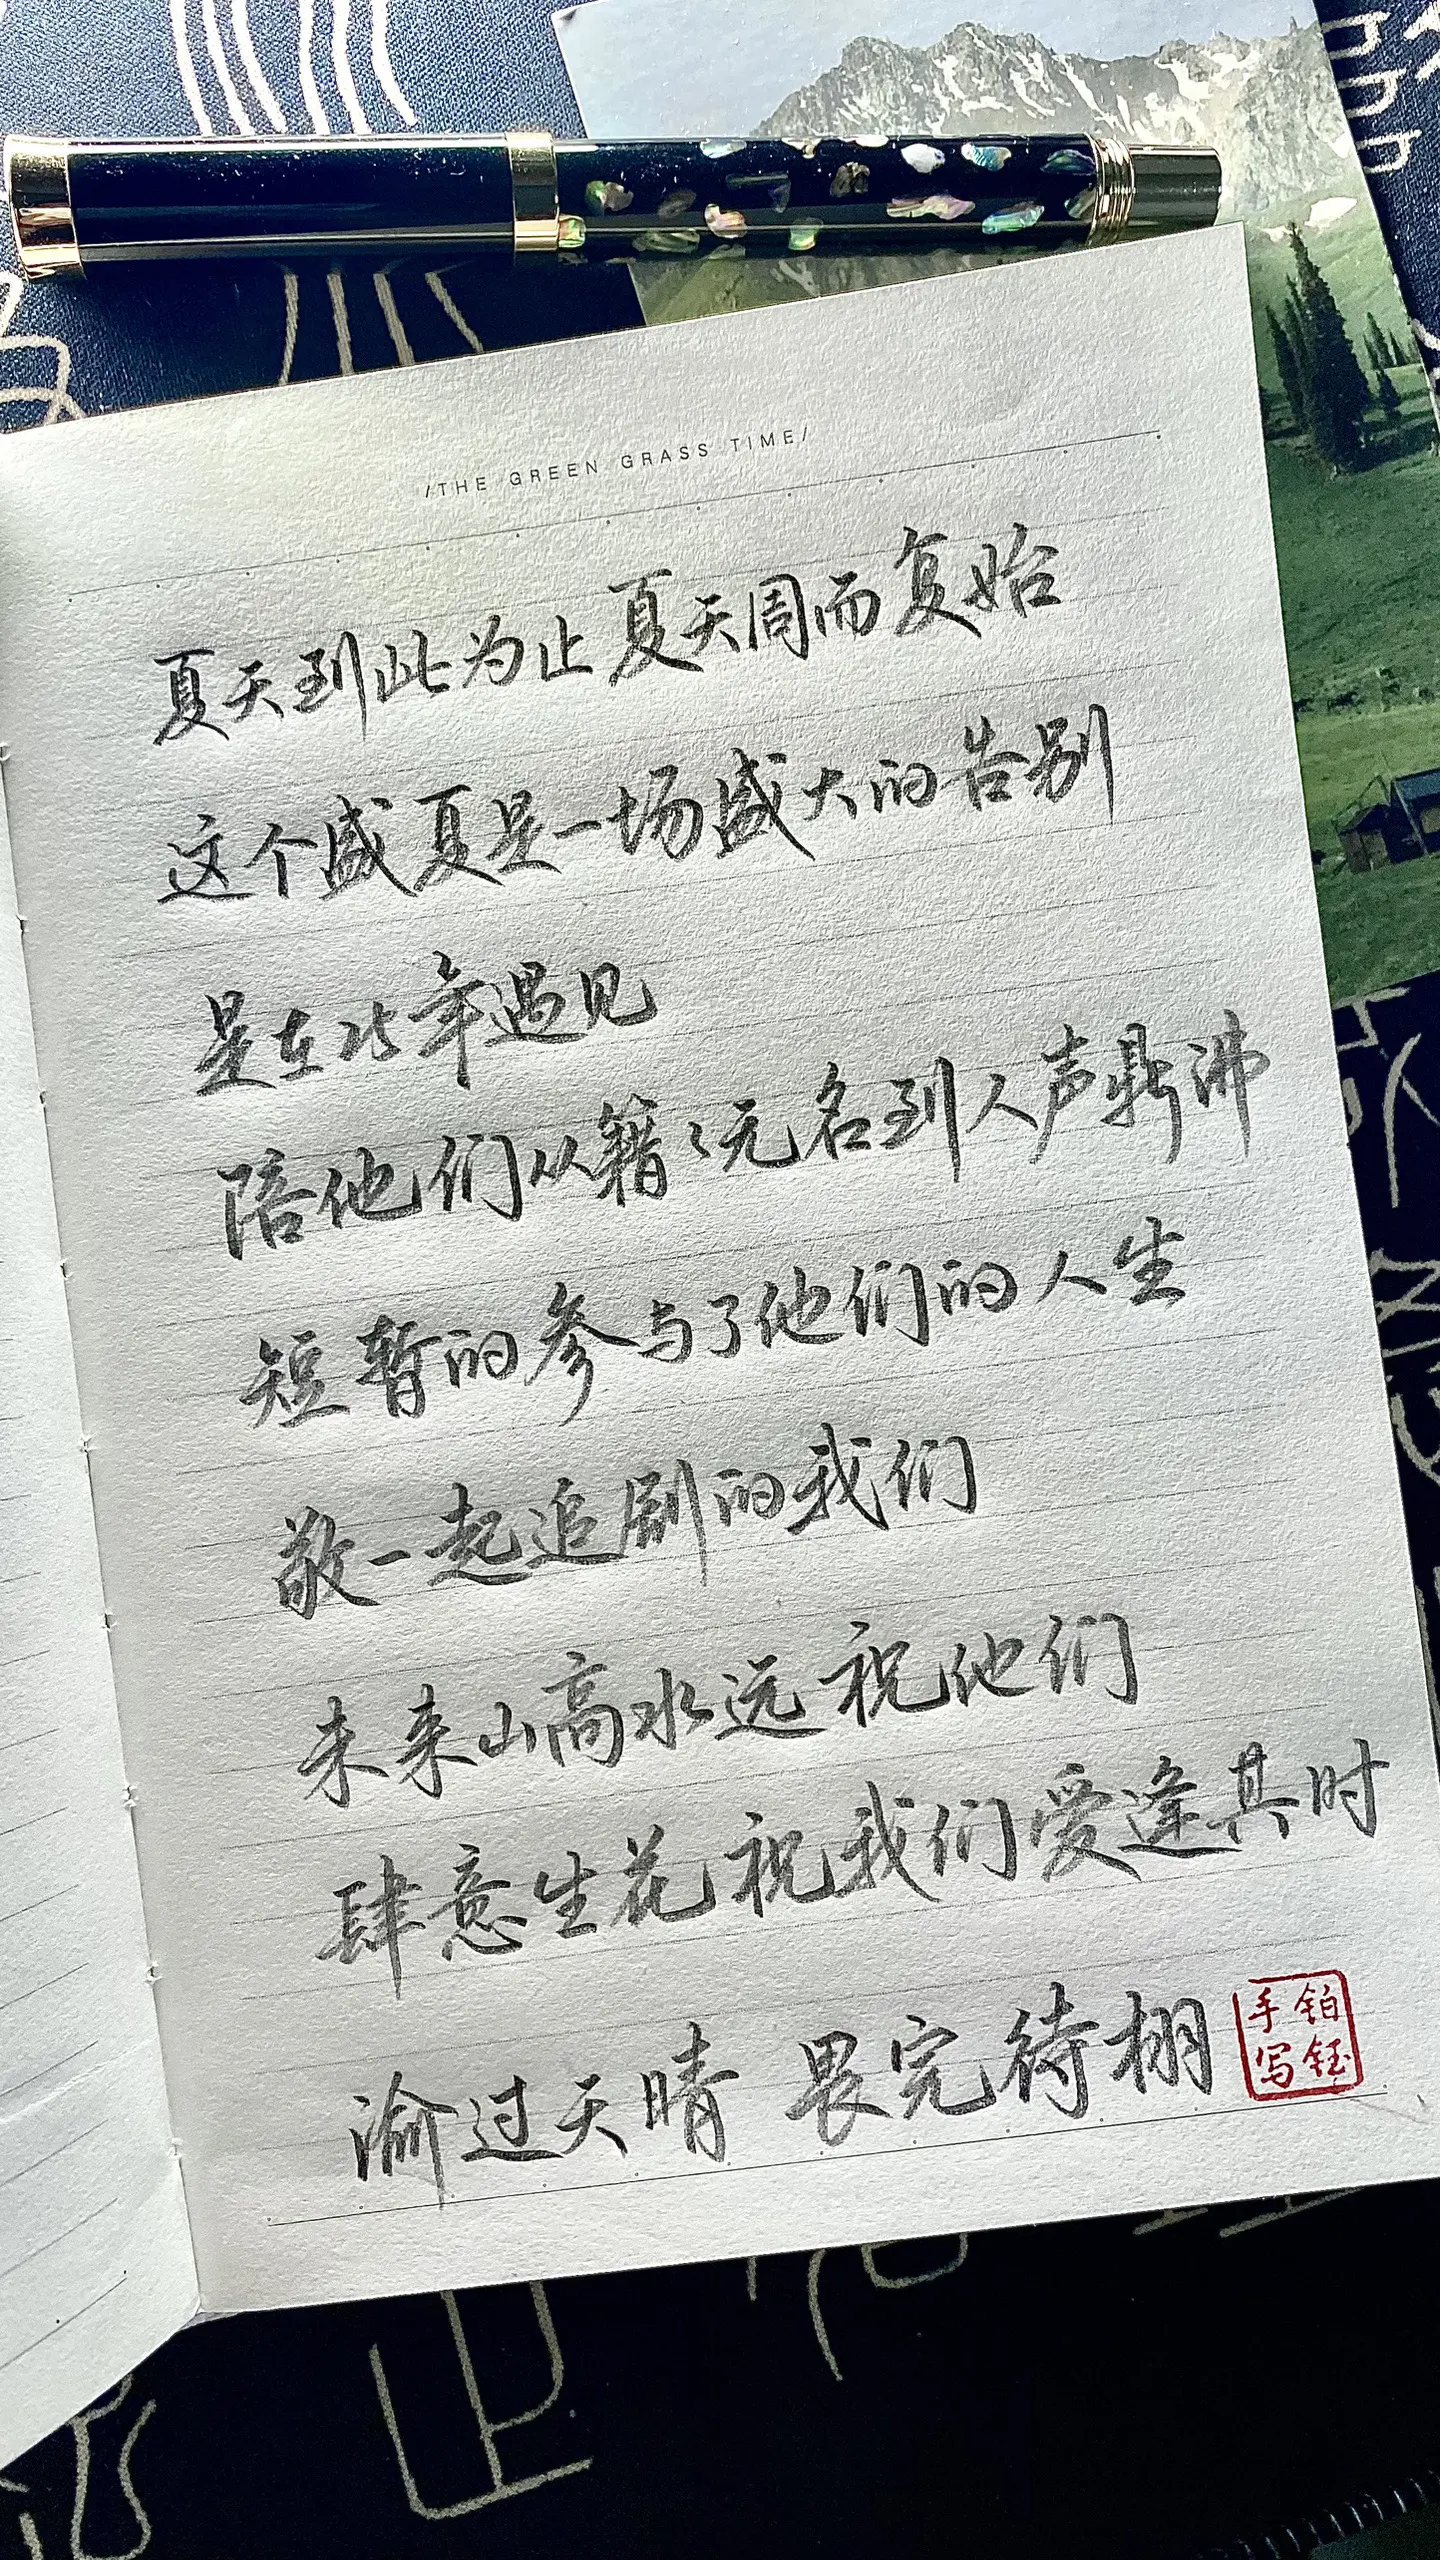 /THE GREEN GRASS TIME/
夏天到此为止 夏天周而复始
这个盛夏是一场盛大的告别
是在25年遇见
陪他们从籍籍无名到人声鼎沸
短暂的参与了他们的人生
敬一起追剧的我们
未来山高水远 祝他们
肆意生花 祝我们爱逢其时
渝过天晴 畏完待栩
铂钰
手写